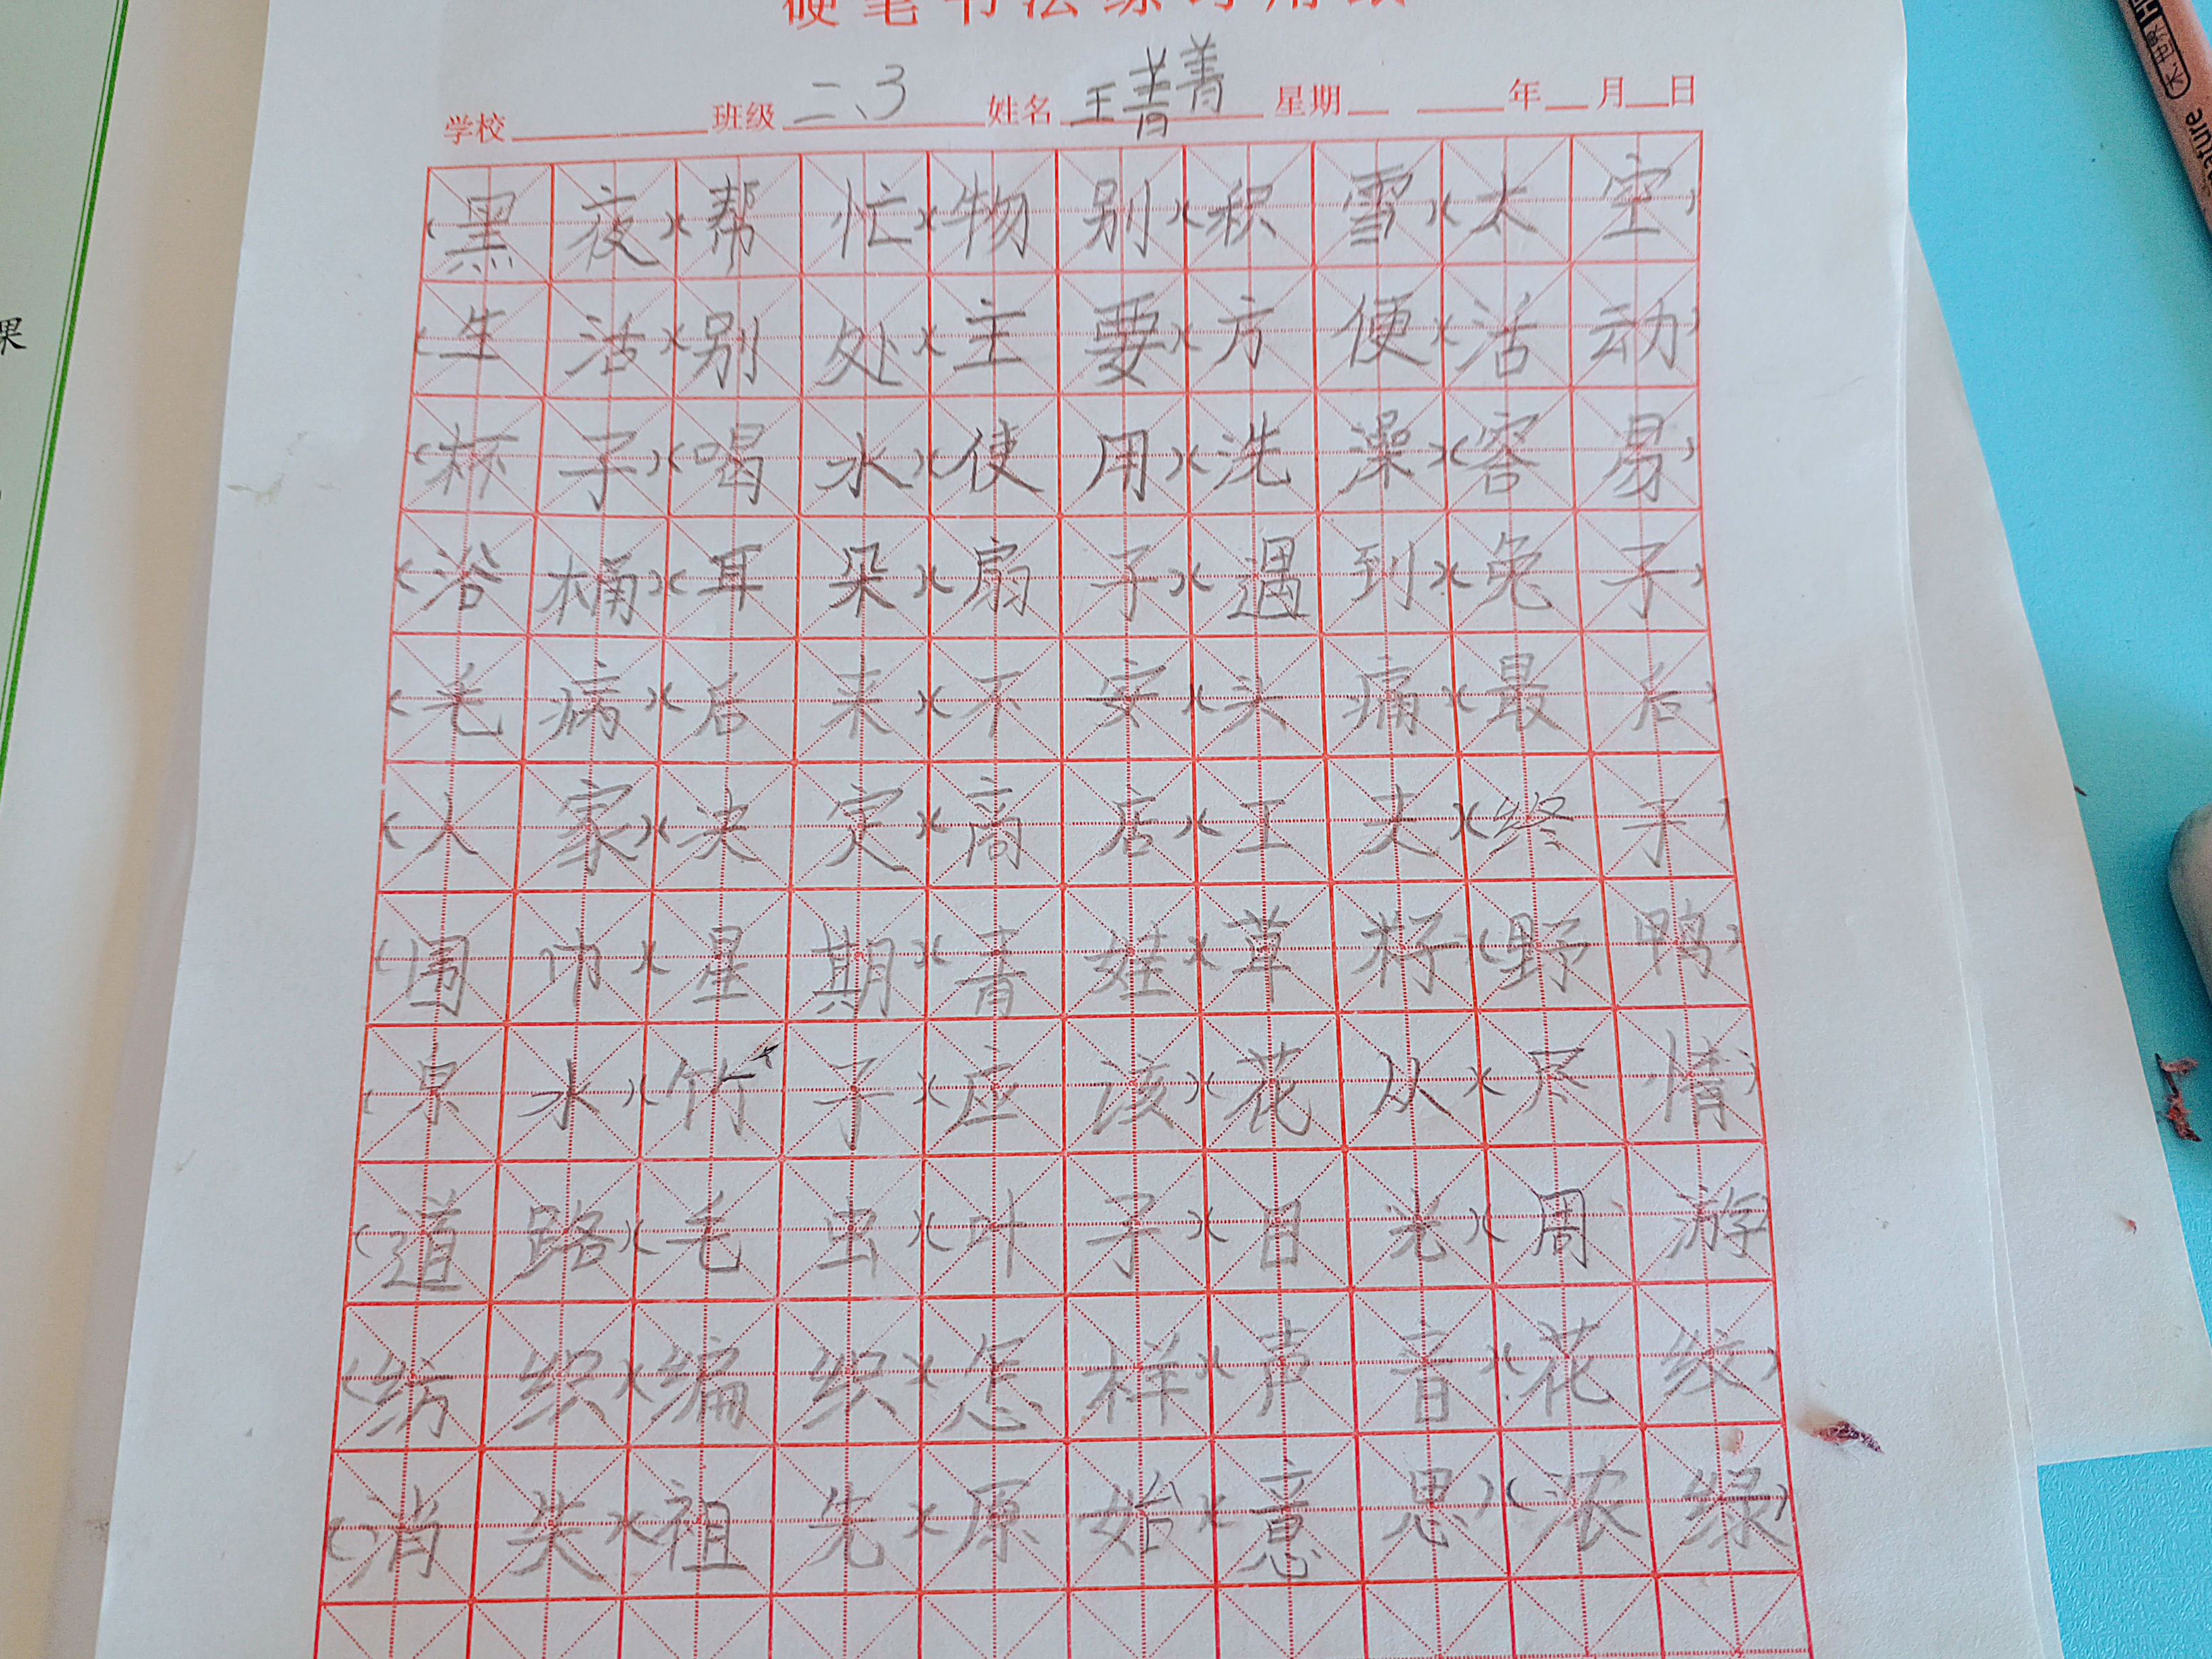 硬笔书法练习用纸
学校 班级 二、3 姓名 王菁菁 星期 年 月 日
(黑夜)(帮忙)(物别)(积雪)(太空)
(生活)(别处)(主要)(方便)(活动)
(杯子)(喝水)(使用)(洗澡)(容易)
(浴桶)(耳朵)(扇子)(遇到)(兔子)
(毛病)(后来)(不安)(头痛)(最后)
(大家)(决定)(商店)(工夫)(终于)
(围巾)(星期)(青蛙)(草籽)(野鸭)
(泉水)(竹子)(应该)(花丛)(尽情)
(道路)(毛虫)(叶子)(日光)(周游)
(纺织)(编织)(怎样)(声音)(花纹)
(消失)(祖先)(原始)(意思)(浓绿)
果
木世界